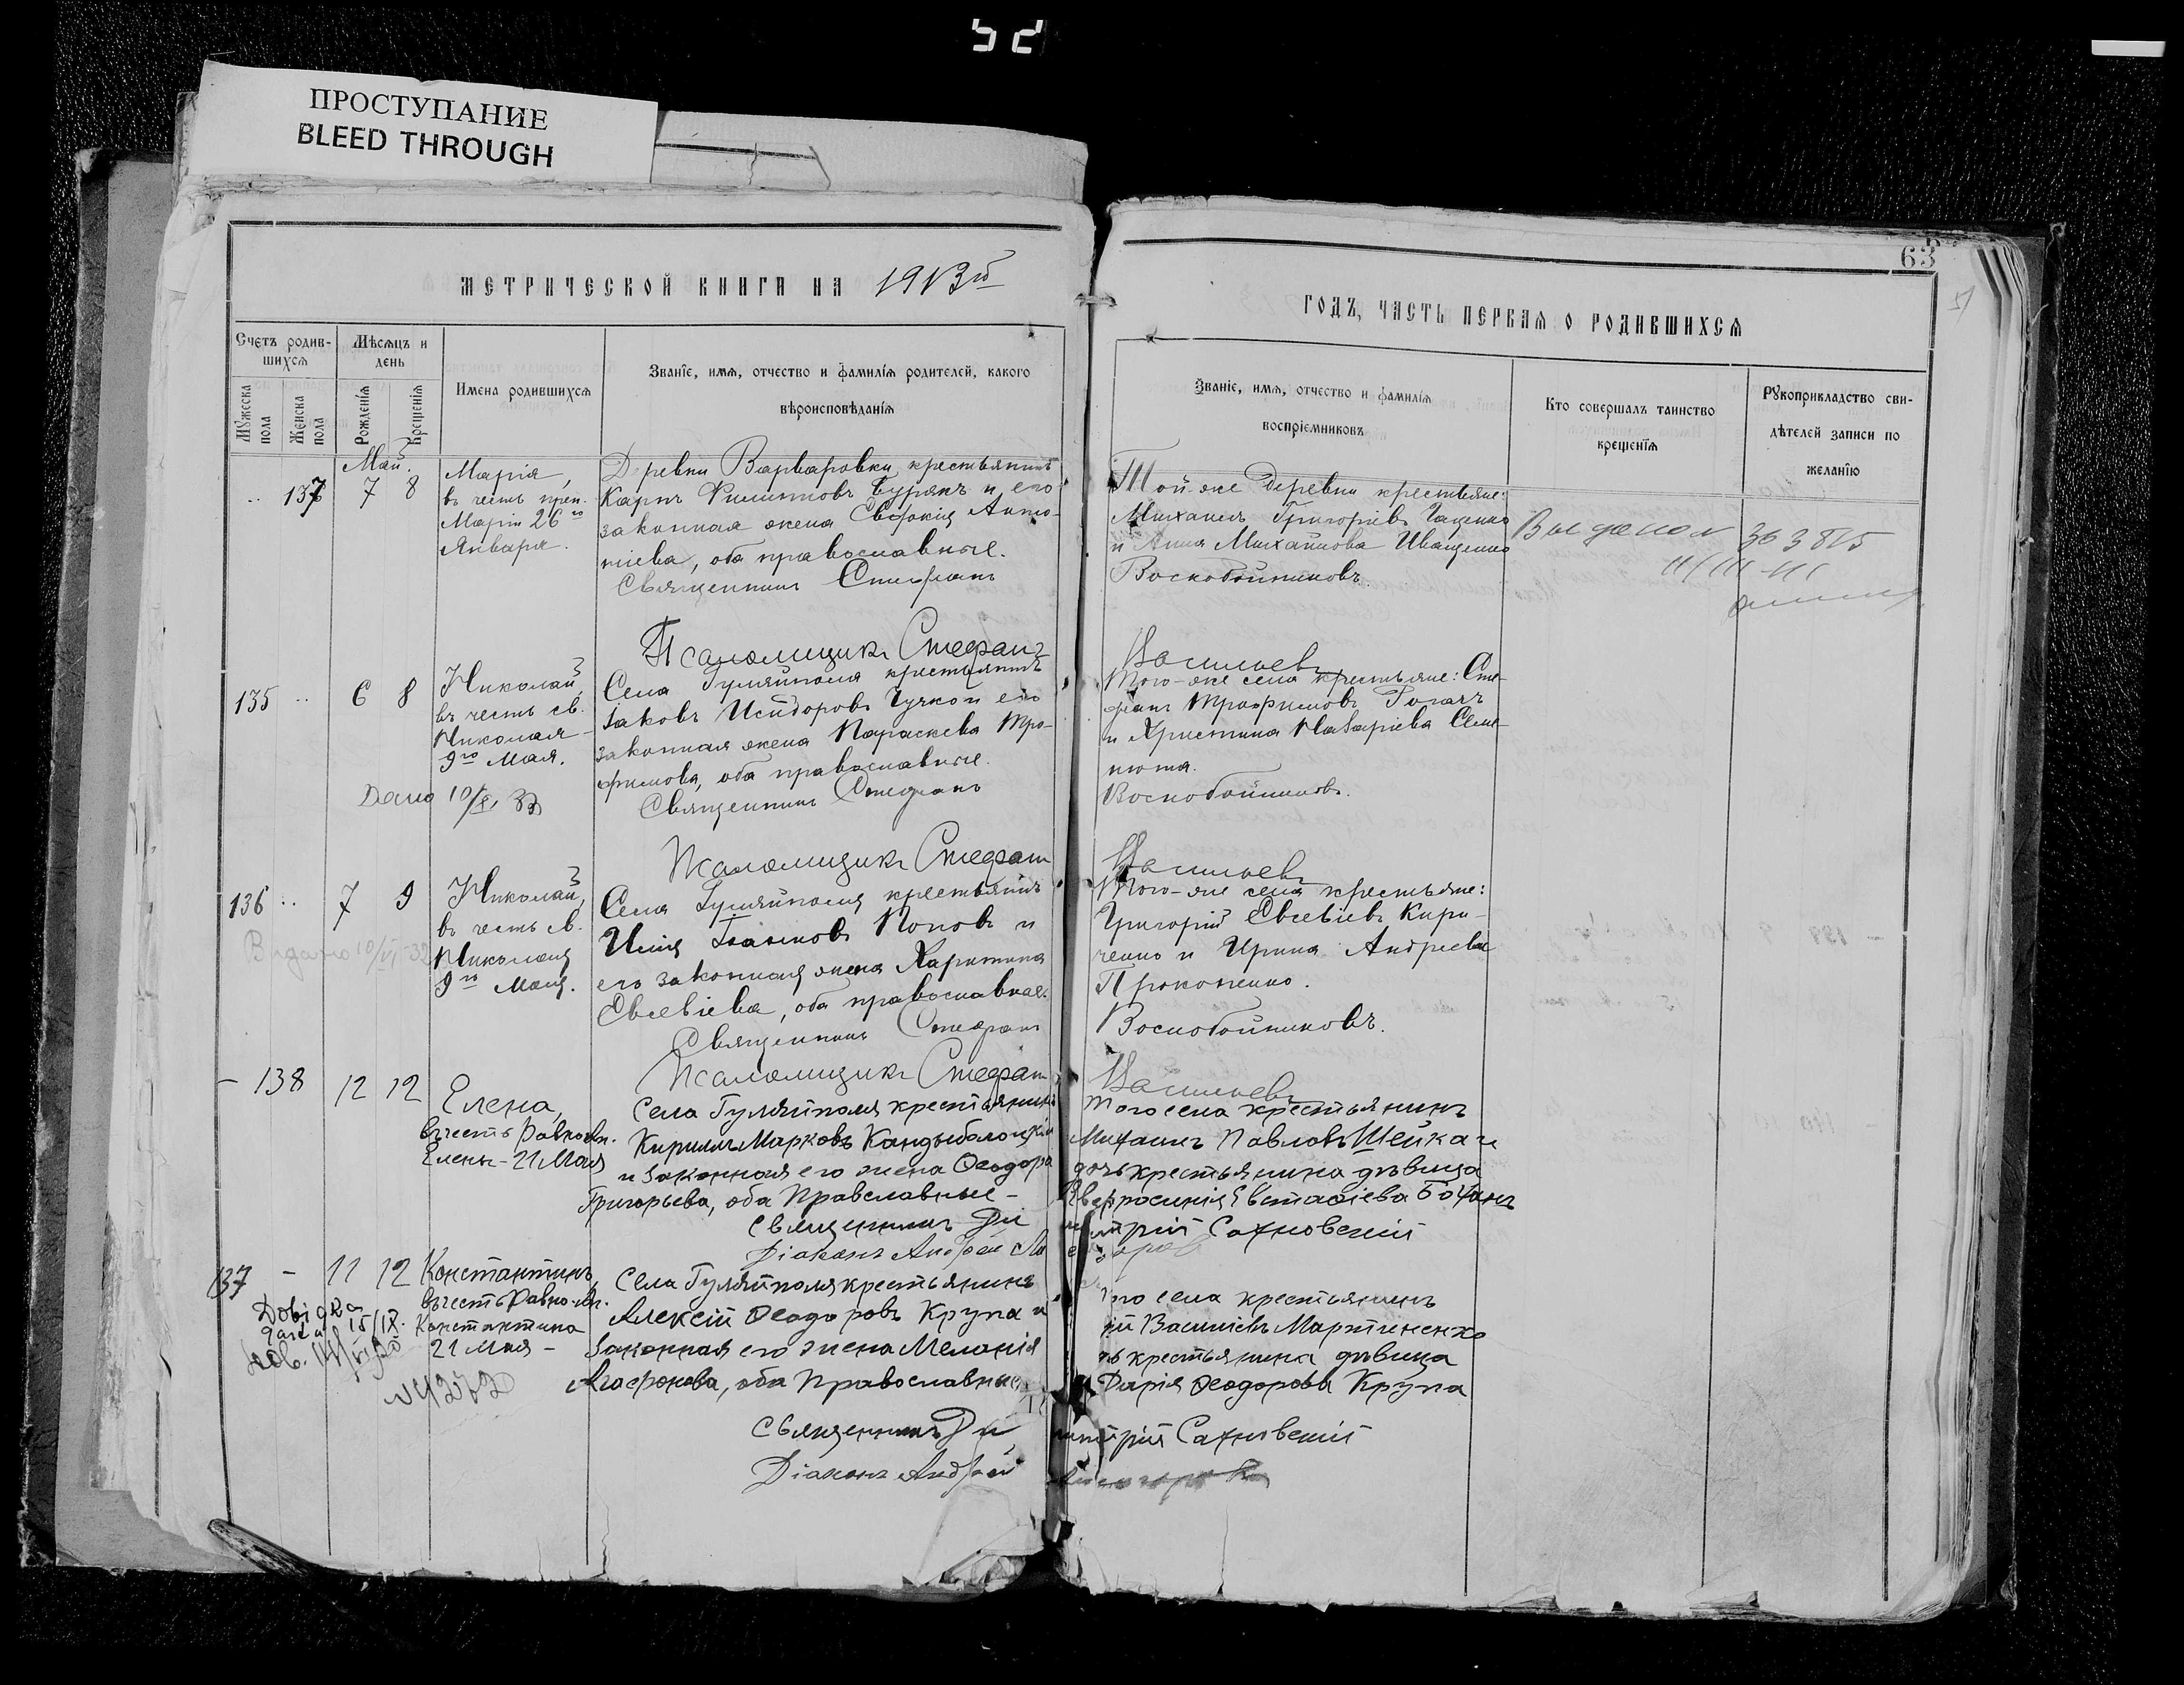 52
ПРОСТУПАНИЕ
BLEED THROUGH
МЕТРИЧЕСКОЙ КНИГИ НА 1913й
Счетъ родив-
шихся
Мѣсяцъ и
день
Мужеска
пола
Женска
пола
Рожденія
Крещенія
Имена родившихся
Званіе, имя, отчество и фамилія родителей, какого
вѣроисповѣданія
Май.
137 7 8
Марія,
въ честь преп.
Маріи 26го
Января.
Деревни Варваровки, крестьянинъ
Карпъ Филипповъ Бурякъ и его
законная жена Евдокія Анто-
ніева, оба православные.
Священникъ Стефанъ
Псаломщикъ Стефанъ
135 6 8
Николай,
въ честь св.
Николая
9го Мая.
Дано 10/
Села Гуляйполя крестьянинъ
Іаковъ Исидоровъ Гучко и его
законная жена Параскева Тро-
фимова, оба православные.
Священникъ Стефанъ
Псаломщикъ Стефанъ
136 7 9
Николай,
въ честь св.
Николая
9го Мая.
Видано 10/VI-32
Села Гуляйполя крестьянинъ
Илія Іаковъ Поповъ и
его законная жена Харитина
Евсевіева, оба православные.
Священникъ Стефанъ
Псаломщикъ Стефанъ
– 138 12 12
Елена,
въ честь Равноап.
Елены – 21 Мая
Села Гуляйполя крестьянинъ
Кириллъ Марковъ Кандыболоцкій
и законная его жена Ѳеодора
Григорьева, оба Православные –
Священникъ Ди
Діаконъ Андрей
137 – 11 12
Константинъ,
въ честь Равно-ап.
Константина
21 Мая –
Довідка
дана 15/IX.
Села Гуляйполя крестьянинъ
Алексій Ѳеодоровъ Крупа и
законная его жена Меланія
Агафонова, оба Православные
Священникъ Ди
Діаконъ Андрей
63
51
ГОДЪ, ЧАСТЬ ПЕРВАЯ О РОДИВШИХСЯ
Званіе, имя, отчество и фамилія
воспріемниковъ
Кто совершалъ таинство
крещенія
Рукоприкладство сви-
дѣтелей записи по
желанію
Той-же деревни крестьяне:
Михаилъ Григоріевъ Гаценко
и Анна Михайлова Иващенко
Воскобойниковъ.
Васильевъ
Того-же села крестьяне: Сте-
фанъ Трофимовъ Голахъ
и Христина Назаріева Семе-
нюта.
Воскобойниковъ.
Васильевъ
Того-же села крестьяне:
Григорій Евсевіевъ Кири-
ченко и Ирина Андреева
Прокопенко.
Воскобойниковъ.
Васильевъ
Того села крестьянинъ
Михаилъ Павловъ Шейка и
дочь крестьянина дѣвица
Евфросинія Евстафіева Боцанъ
митрій Сахновскій
того села крестьянинъ
ій Василіевъ Мартиненко
чь крестьянина дѣвица
Дарія Ѳеодорова Крупа
митрій Сахновскій